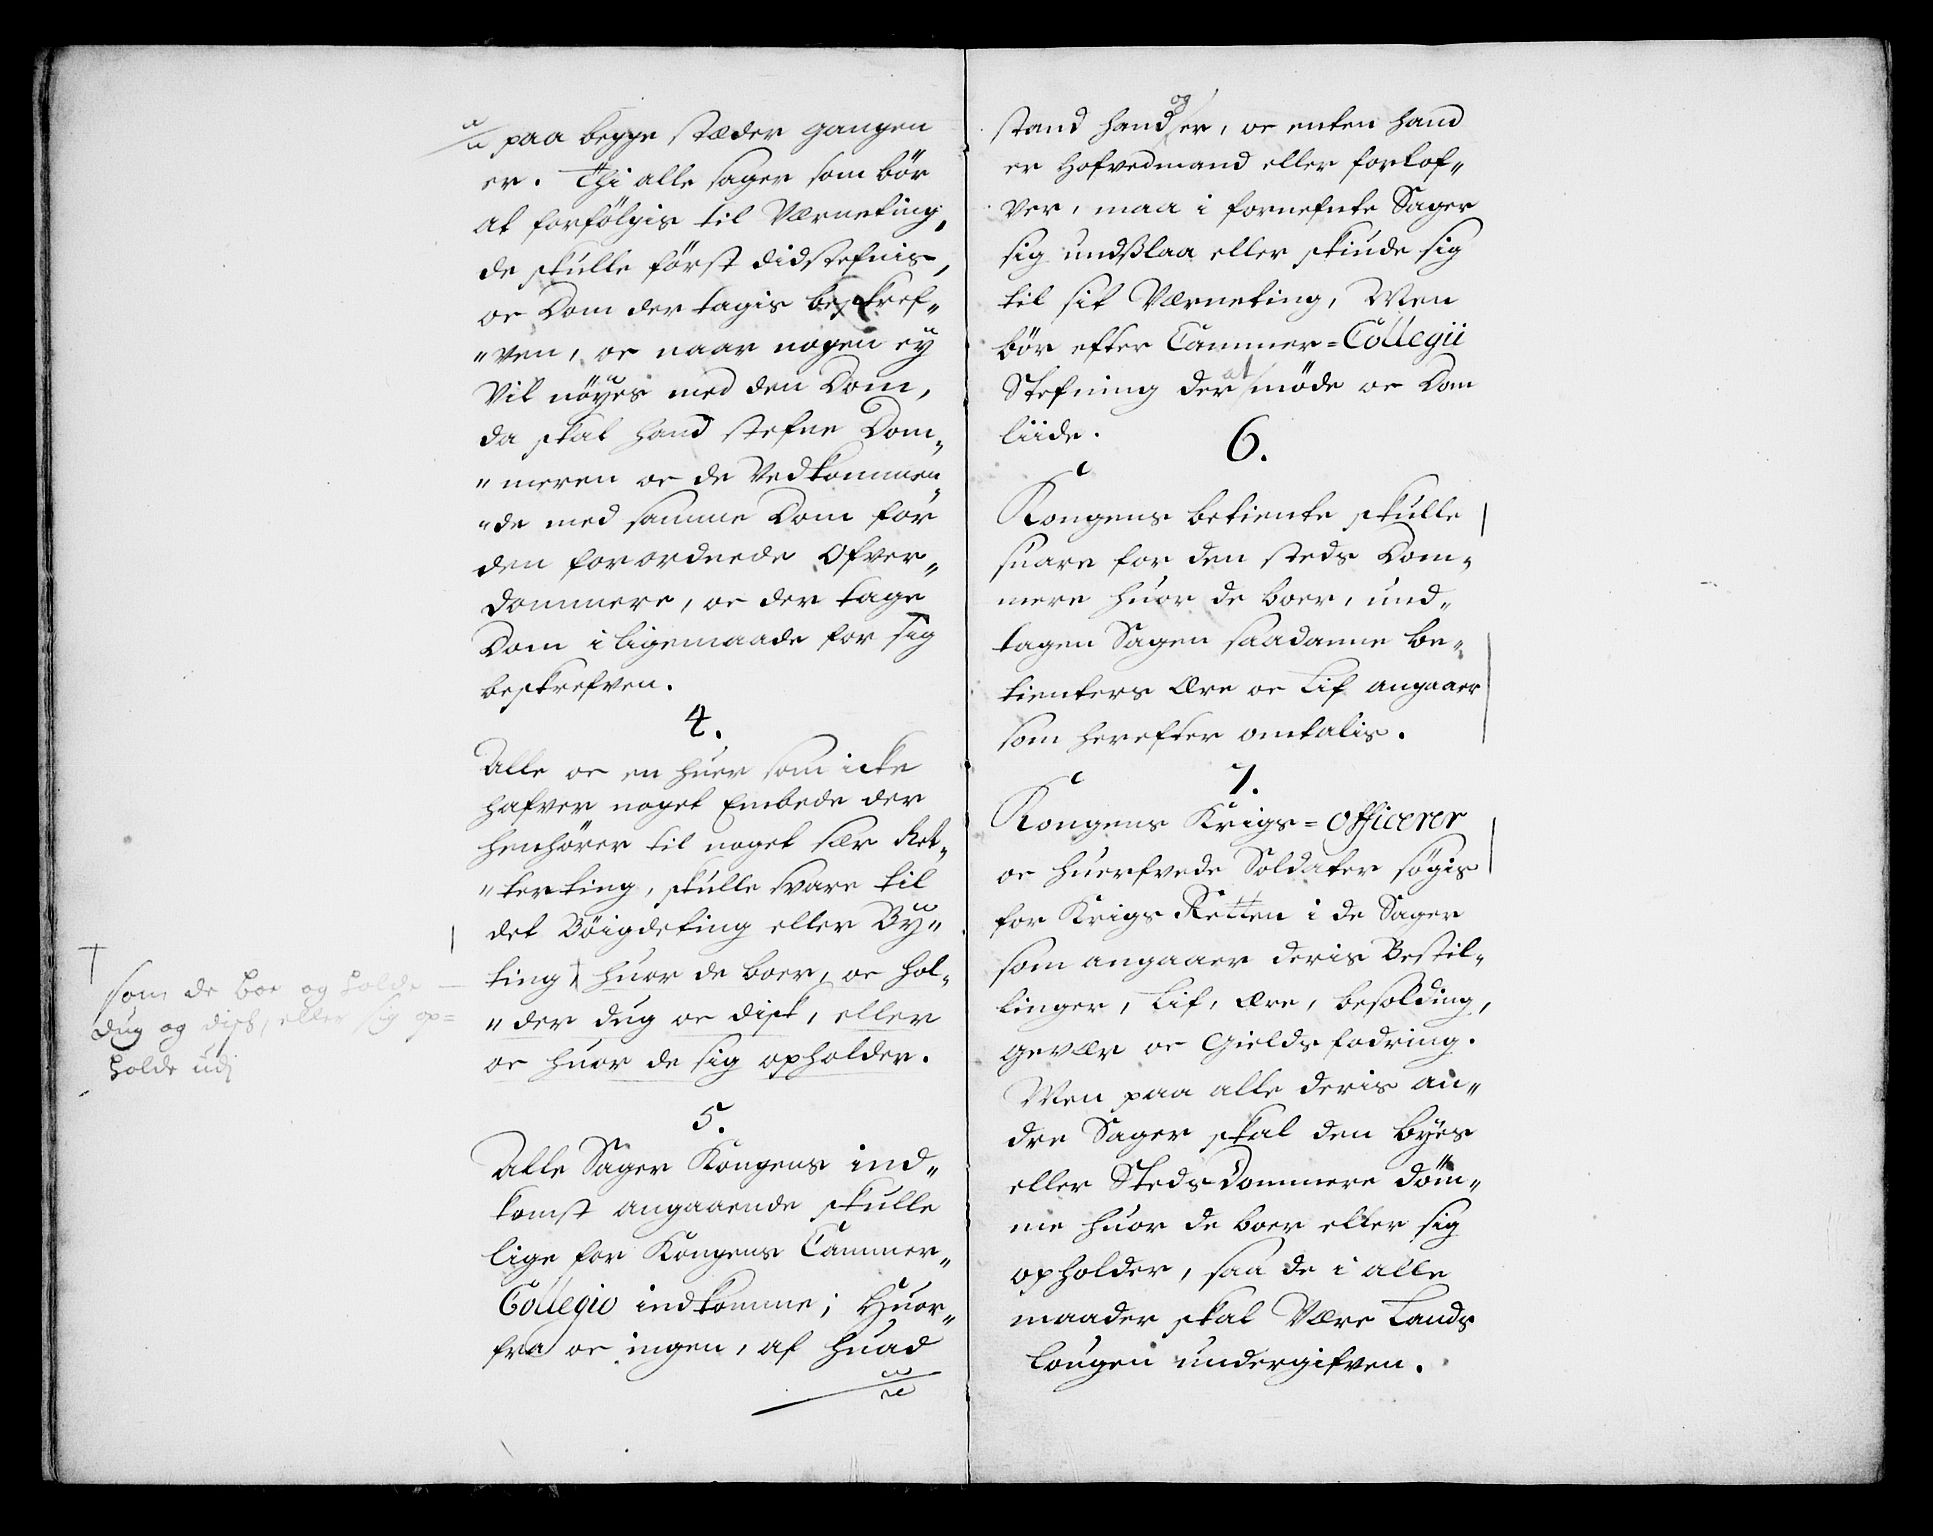 paa begge stæder gangen
er. Thi alle sager som bör
at forfölgis til Værneting,
de skulle först didstefnis,
oc Dom der tagis beskref„
„ven, oc naar nogen ey
Vil nöyes med den Dom,
da skal hand stefne Dom„
„meren oc de Vedkommen„
„de med samme Dom for
den forordnede Ofver„
Dommere, oc der tage
Dom i ligemaade for sig
beskrefven.
4.
Alle oc en huer som icke
hafver noget Embede der
henhörer til noget sær Ret„
„terting, skulle svare til
det Böigdeting eller By„
ting † huor de boer, oc hol„
„der dug oc disk, eller
oc huor de sig opholder.
†
som de boe og holde
dug og disk, eller sig op=
holde udi
5.
Alle Sager Kongens ind„
komst angaaende skulle
lige for Kongens Cammer„
Collegio indkomme; Huor„
fra oc ingen, af huad
stand hand og er, oc enten hand
er Hofvedmand eller forlof„
ver, maa i fornefnte Sager
sig undßlaa eller skiude sig
til sit Værneting, Men
bör efter Cammer=Collegii
Stefning der at möde oc Dom
liide.
6.
Kongens betiente skulle
suare for den steds Dom„
mere huor de boer, und„
tagen Sagen saadanne be„
tienters Ære oc Lif angaaer
som herefter omtalis.
7.
Kongens Krigs=Officerer
oc huerfvede Soldater søgis
for Krigs Retten i de Sager
som angaaer deris Bestil„
linger, Lif, Ære, besolding,
gevær oc Gields fodring.
Men paa alle deris an„
dre Sager skal den byes
eller Steds Dommere döm„
me huor de boer eller sig
opholder, saa de i alle
maader skal Være Lands
Lougen undergifven.